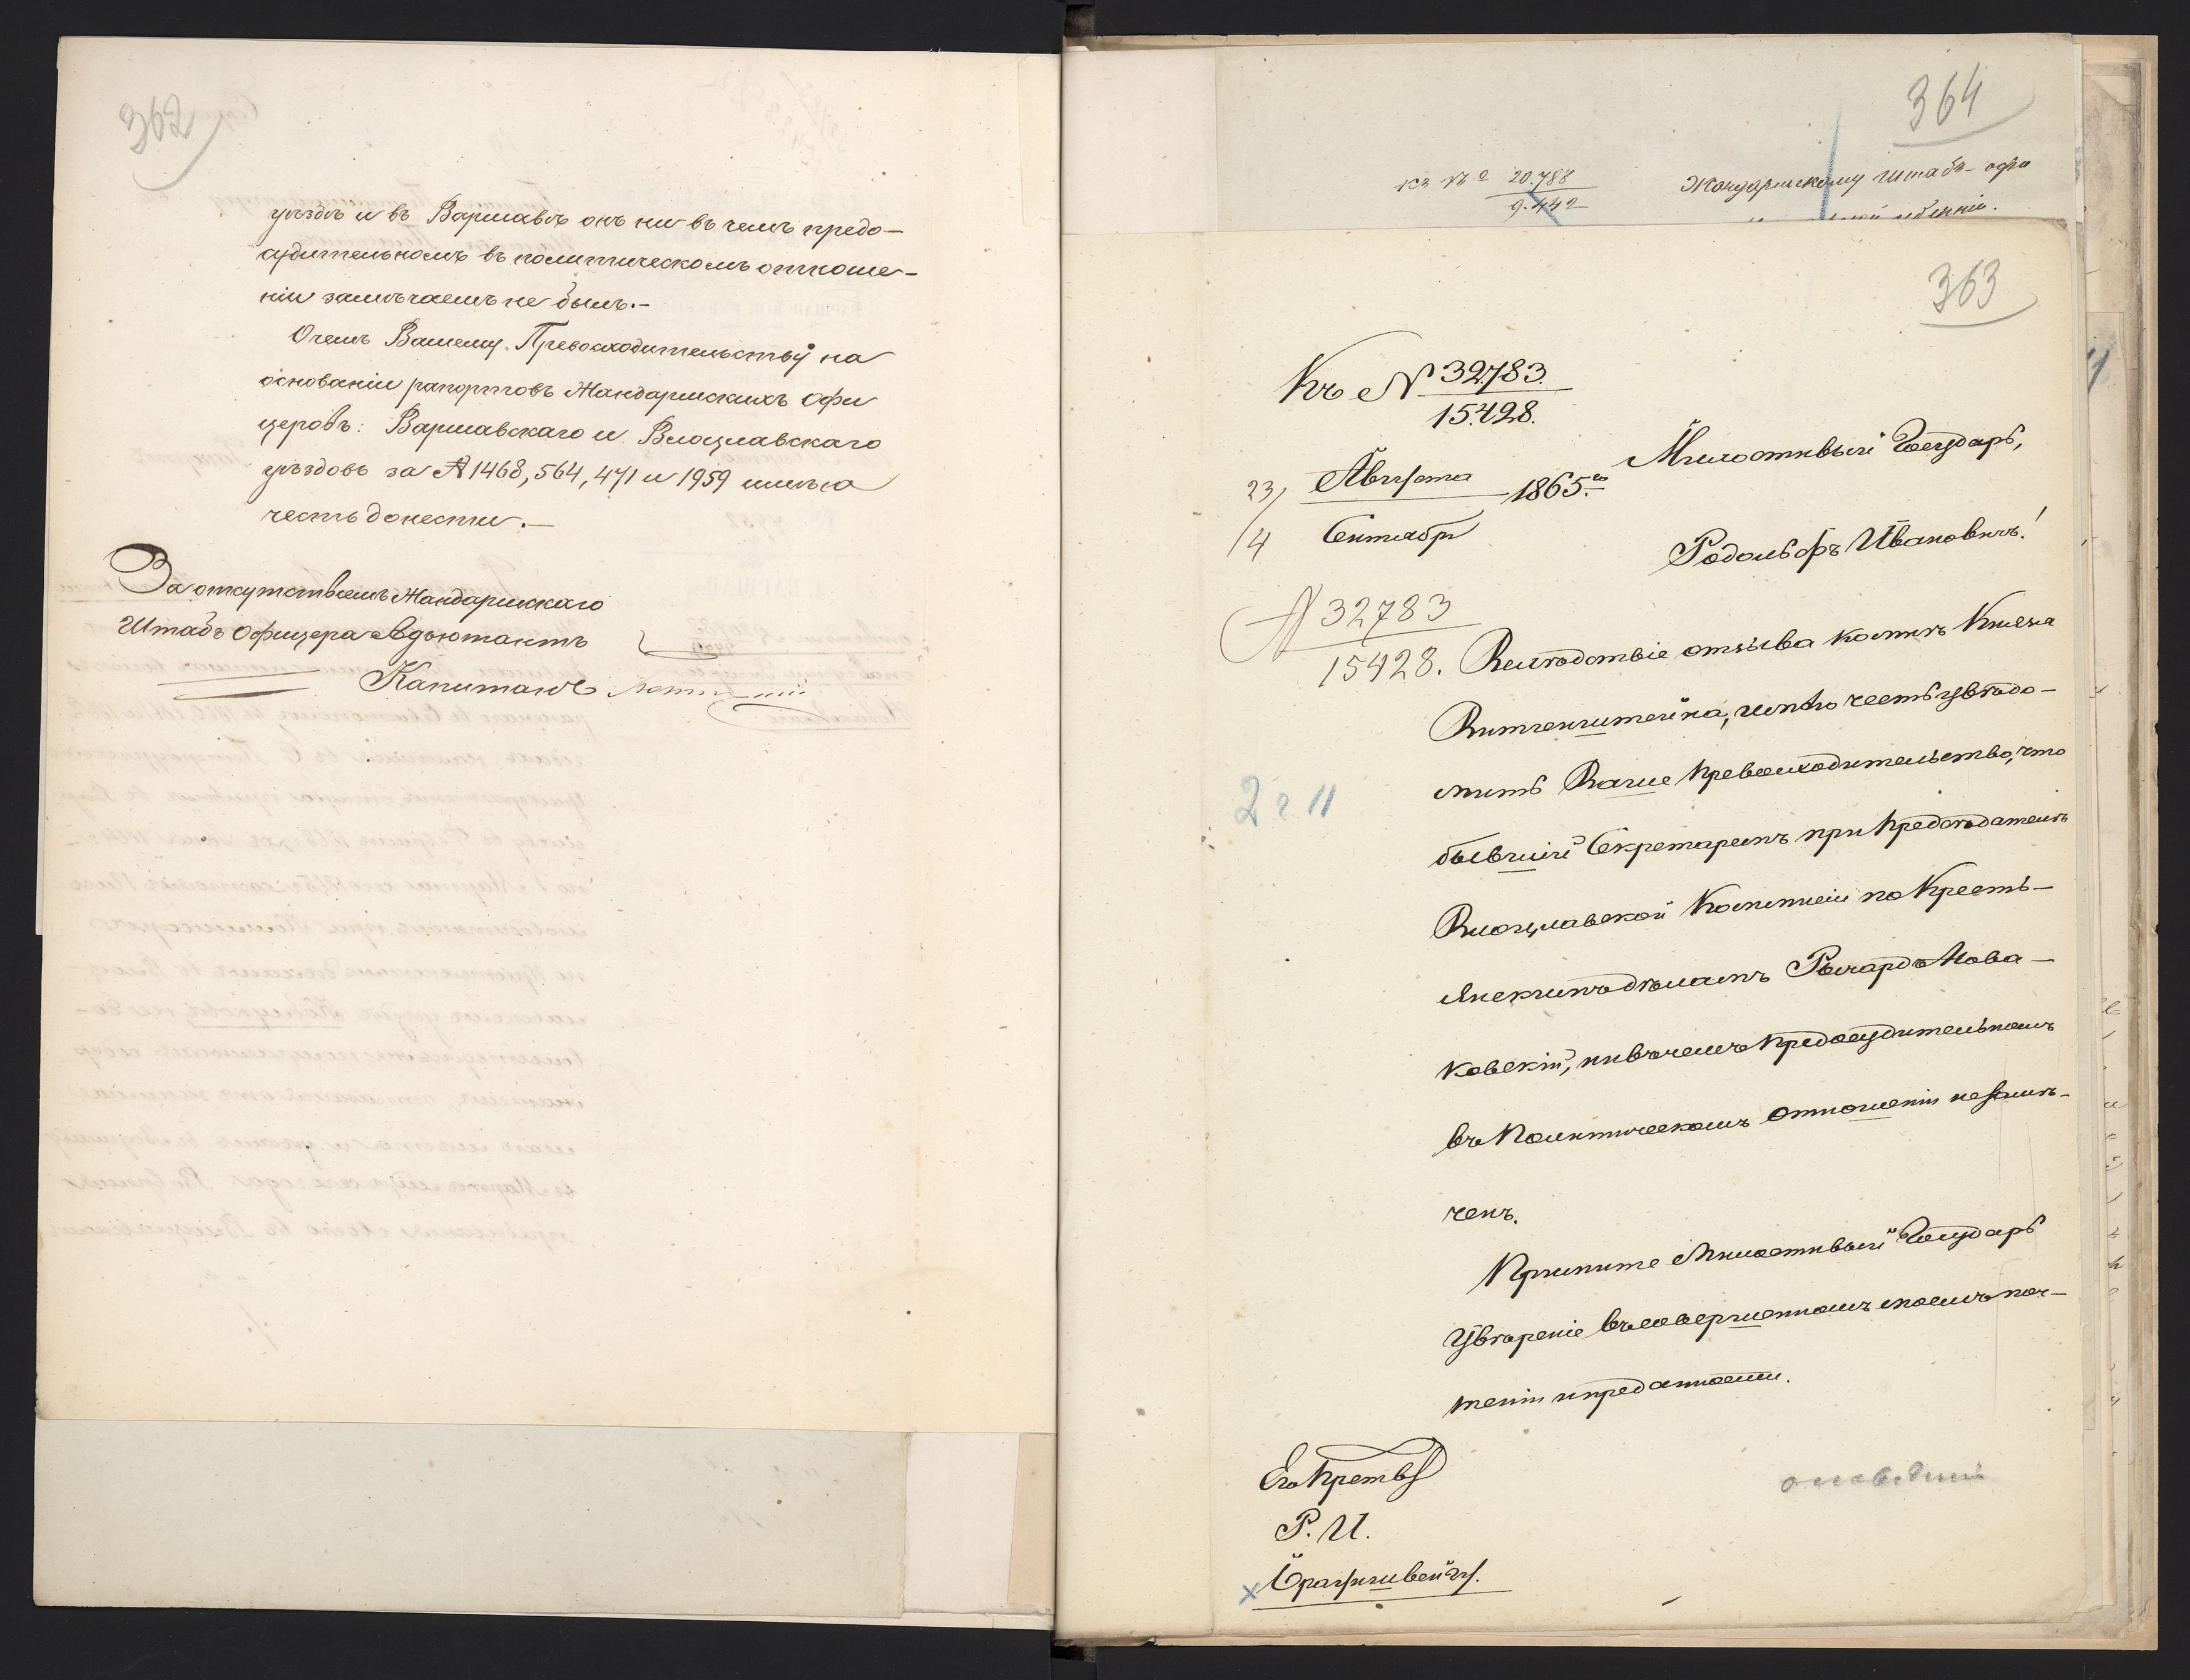 362
уѣздѣ и въ Варшавѣ онъ ни въ чемъ предо-
судительномъ въ политическомъ отноше-
ніи замѣчаемъ не былъ.-
О чемъ Вашему Превосходительству на
основаніи рапортовъ Жандармскихъ Офи
церовъ: Варшавскаго и Влоцлавскаго
уѣздовъ за № 1468, 564, 471 и 1959 имѣю
честь донести.—
За отсутствіемъ Жандармскаго
Штабъ Офицера Адъютантъ
Капитанъ
364
къ № 20.788
9.442
Жандармскому штабъ-офи
363
Къ № 32.783.
15.428.
23/ Августа 1865.го
/4 Сентября
Милостивый Государь,
Родольфъ Ивановичъ!
№ 32783
15428.
Вслѣдствіе отзыва комнѣ Князя
Витгенштейна, имѣю честь увѣдо-
мить Ваше Превосходительство, что
бывшій Секретаремъ при Предсѣдателѣ
Влоцлавской Комисіи по Кресть-
янскимъ дѣламъ Рычардъ Нова-
ковскій, ни въ чемъ предосудительномъ
въ Политическомъ отношеніи незамѣ-
ченъ.
2 г 11
Примите Милостивый Государь
увѣреніе въ совершенномъ моемъ поч-
теніи и преданности.
Его Прству
Р. И.
Х Брауншвейгу.